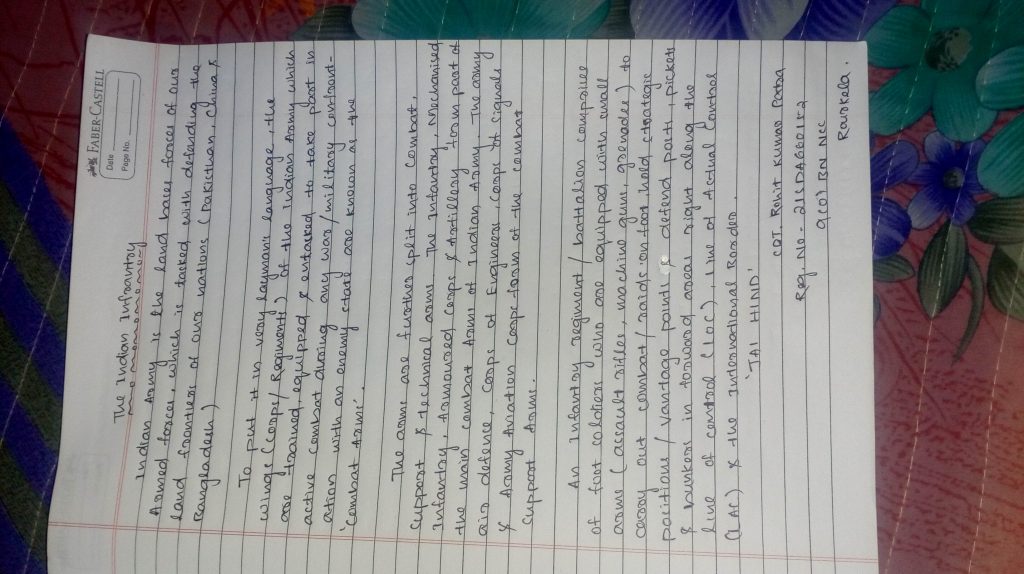 FABER-CASTELL
Date
Page No.
The Indian Infrantry
Indian Army is the land bases forces of our
Armed forces, which is tasked with defending the
land frontiers of our nations (Pakistan, China &
Bangladesh)
To put it in very layman's language, the
wings (corps/ Regiments) of the Indian Army which
are trained, equipped & entasked to take part in
active combat during any war/military confront-
ation with an enemy state are known as the
'Combat Arms'.
The arms are further split into combat,
support & technical arms. The Infantry, Mechanised
Infantry, Armoured Corps & Artillery form part of
the main combat Arms of Indian Army. The army
air defence, Corps of Engineers, Corps of Signals
& Army Aviation Corps form of the combat
Support Arms.
An Infantry regiment/ battalion comprises
of foot soldiers who are equipped with small
arms (assault rifles, machine guns, grenades) to
carry out combat/ raids on foot hold strategic
positions/ Vantage points, defend posts, pickets
& bunkers in forward areas right along the
line of control (LOC), Line of Actual Control
(LAC) & the International Border.
'JAI HIND'
CDT. Rohit Kumar Patra
Reg No - 21SDA600152
9(O) BN NCC
Rourkela.